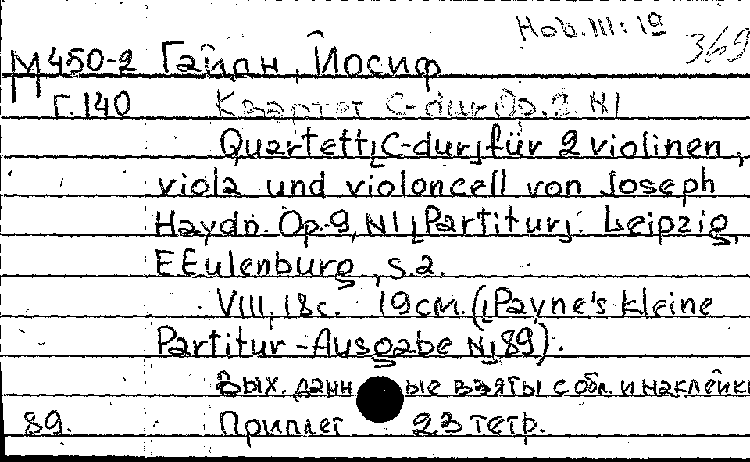 Hob. III: 19
369
М 450-2 Гайдн, Йосиф
Г. 140 Квартет C-dur Op. 9 N1
Quartett [C-dur] für 2 violinen,
viola und violoncell von Joseph
Haydn. Op. 9, N1 [Partitur]. Leipzig,
E Eulenburg, s.a.
VIII, 18 с. 19 см. ([Payne's kleine
Partitur-Ausgabe N] 89).
Вых. данн ые взяты с обл. и наклейки
89. Приплет 23 тетр.